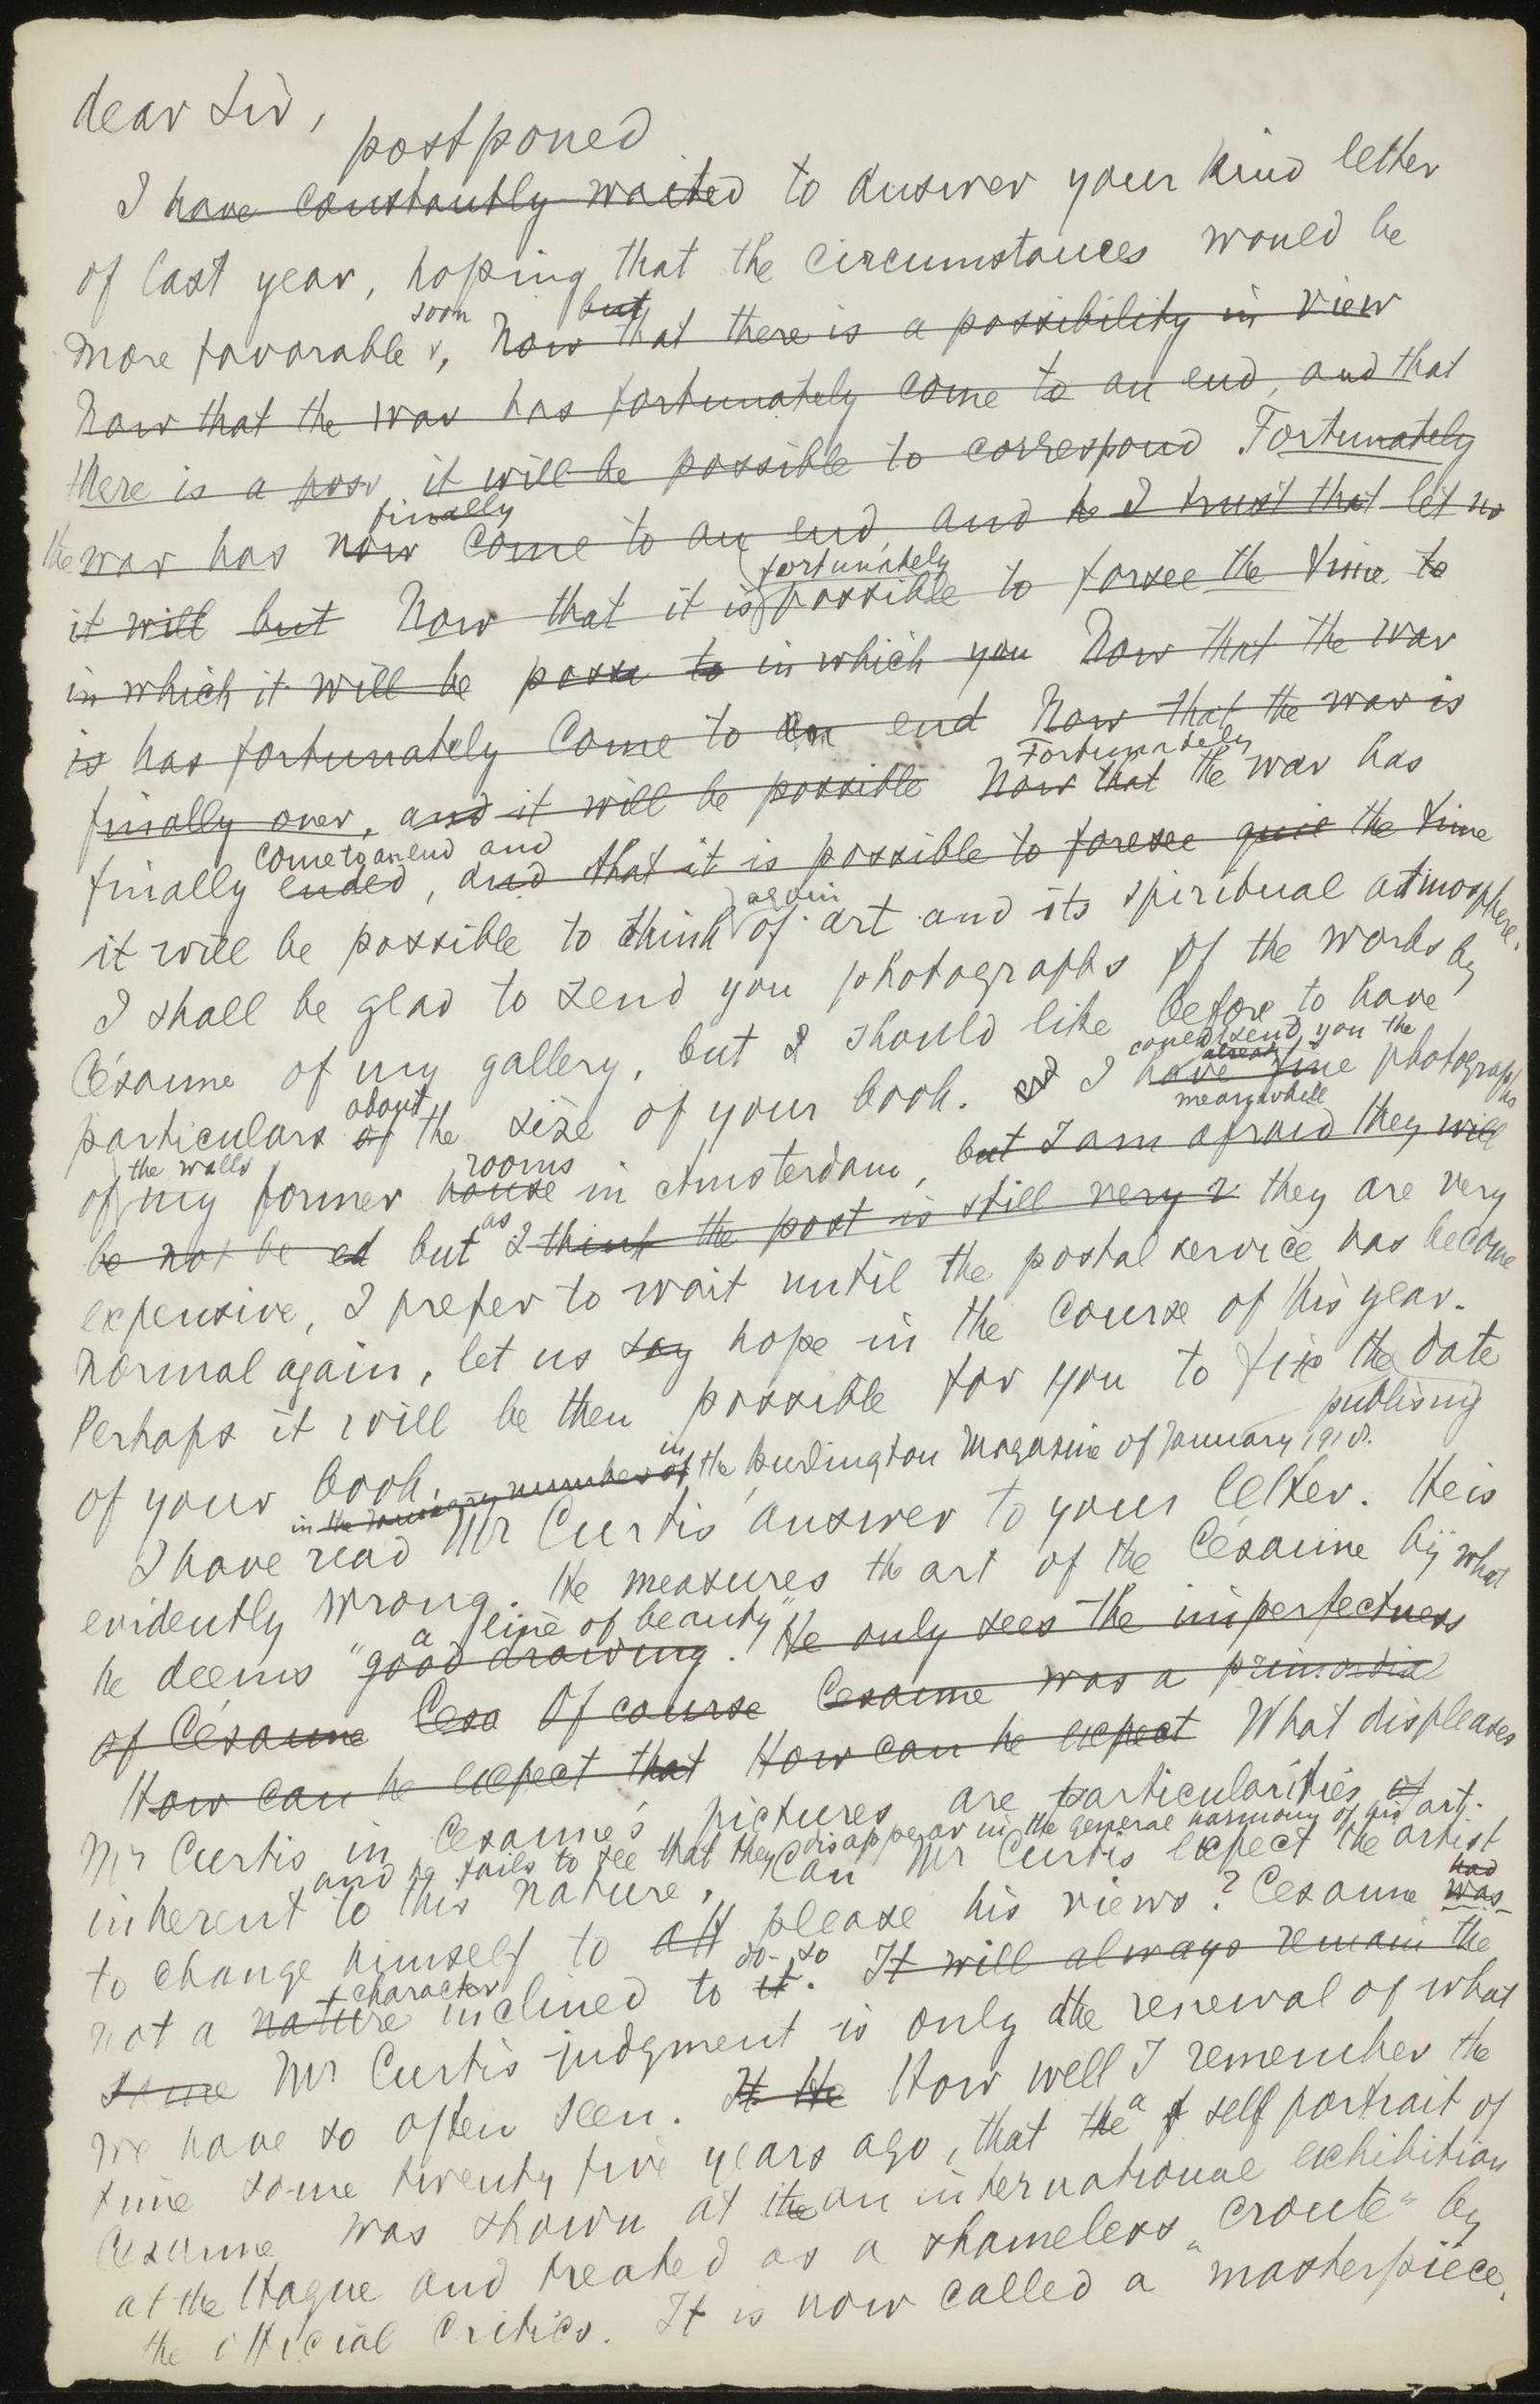 dear Sir,
postponed
I have constantly waited to answer your kind letter
of last year, hoping that the circumstances would be
soon but
more favorable, Now that there is a possibility in view
Now that the war has fortunately come to an end, and that
there is a poss it will be possible to correspond Fortunately
finally
the war has now come to an end, and I trust that let no
fortunately
it will but Now that it is possible to forsee the time to
in which it will be poss to in which you Now that the war
is has fortunately come to an end Now that the war is
Fortunately
finally over, and it will be possible Now that the war has
come to an end and
finally ended, and that it is possible to foresee the time
again
it will be possible to think of art and its spiritual atmosphere.
I shall be glad to send you photographs of the works by
Césanne of my gallery, but I should like before to have
could send you the
already
about
particulars of the size of your book. I have fine photographs
meanwhile
the walls rooms
of my former house in Amsterdam, but I am afraid they will
as
be not be ed but I think the post is still very they are very
expensive, I prefer to wait until the postal service has become
normal again, let us say hope in the course of this year.
Perhaps it will be then possible for you to fix the date
publising
of your book.
in the January number of in the Burlington Magasine of January 1918.
I have read Mr Curtis' answer to your letter. He is
evidently wrong. He measures the art of the Césanne bij what
a line of beauty"
he deems "good drawing. He only sees the imperfectness
of Césanne Cesa Of course Cesanne was a primordial
How can he expect that How can he expect What displeases
Mr Curtis in Cesanne's pictures are particularities of art.
and he fails to see that they disappear in the general harmony of his
inherent to this nature, Can Mr Curtis expect the artist
had
to change himself to alt please his views? Cesanne was
character do so
not a nature inclined to it. It will always remain the
same Mr Curtis judgment is only the renewal of what
we have so often seen. It He How well I remember the
a
time some twenty five years ago, that the self portrait of
Cesanne was shown at the an international exhibition
at the Hague and treated as a shameless „croute" by
the official critics. It is now called a "masterpiece.